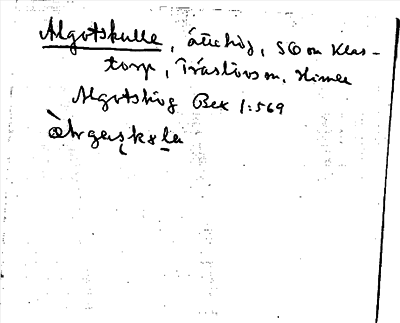 Algotskulle, ättehög, SO om Klas-
torp, Träslövs sn, Himle
Algotshög Bex 1:569